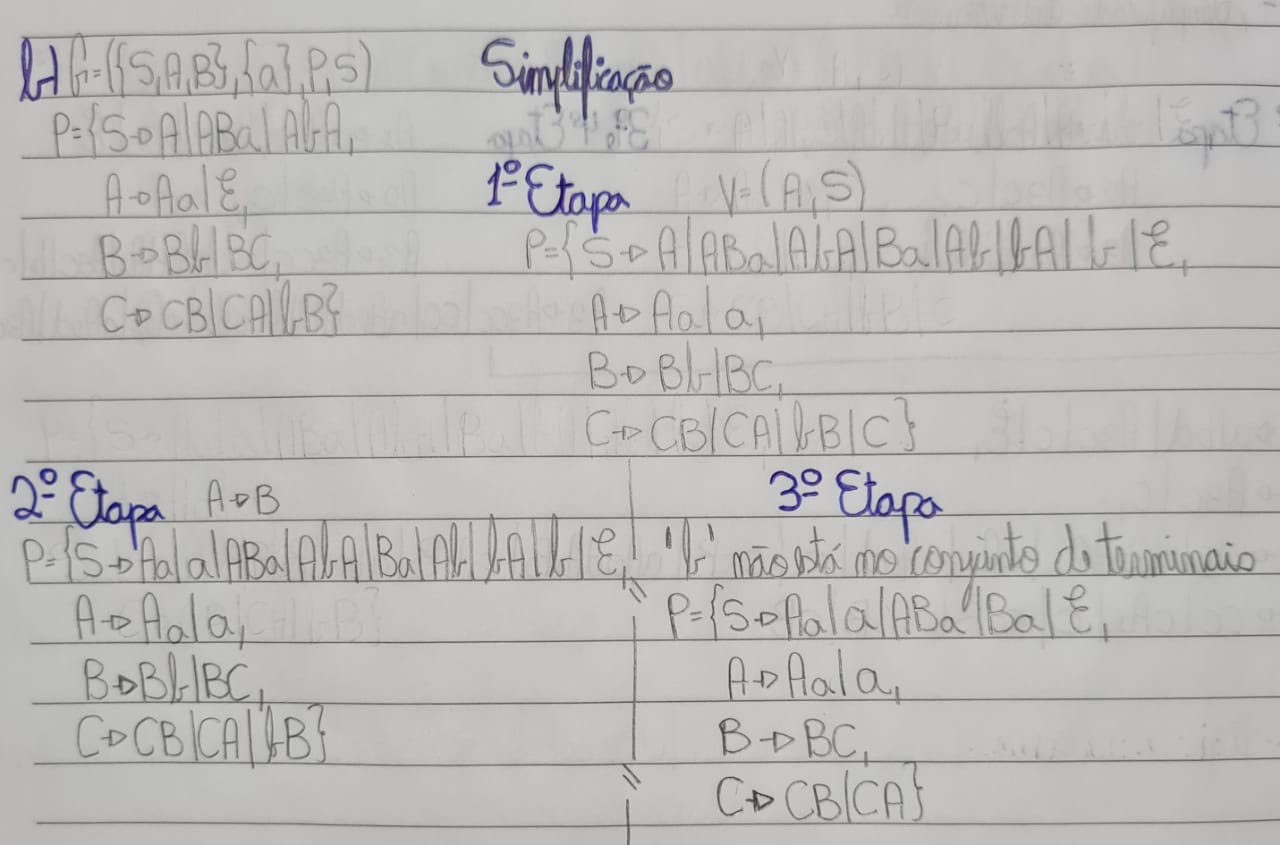 b) G=({S,A,B},{a},P,S)
Simplificação
P={S→A|ABa|AbA,
A→Aa|ε,
B→Bb|BC,
C→CB|CA|bB}
1º Etapa V=(A,S)
P={S→A|ABa|AbA|Ba|Ab|bA|b|ε,
A→Aa|a,
B→Bb|BC,
C→CB|CA|bB|C}
2º Etapa A→B
P={S→Aa|a|ABa|AbA|Ba|Ab|bA|b|ε,
A→Aa|a,
B→Bb|BC,
C→CB|CA|bB}
3º Etapa
'b' não está no conjunto de terminais
P={S→Aa|a|ABa|Ba|ε,
A→Aa|a,
B→BC,
C→CB|CA}